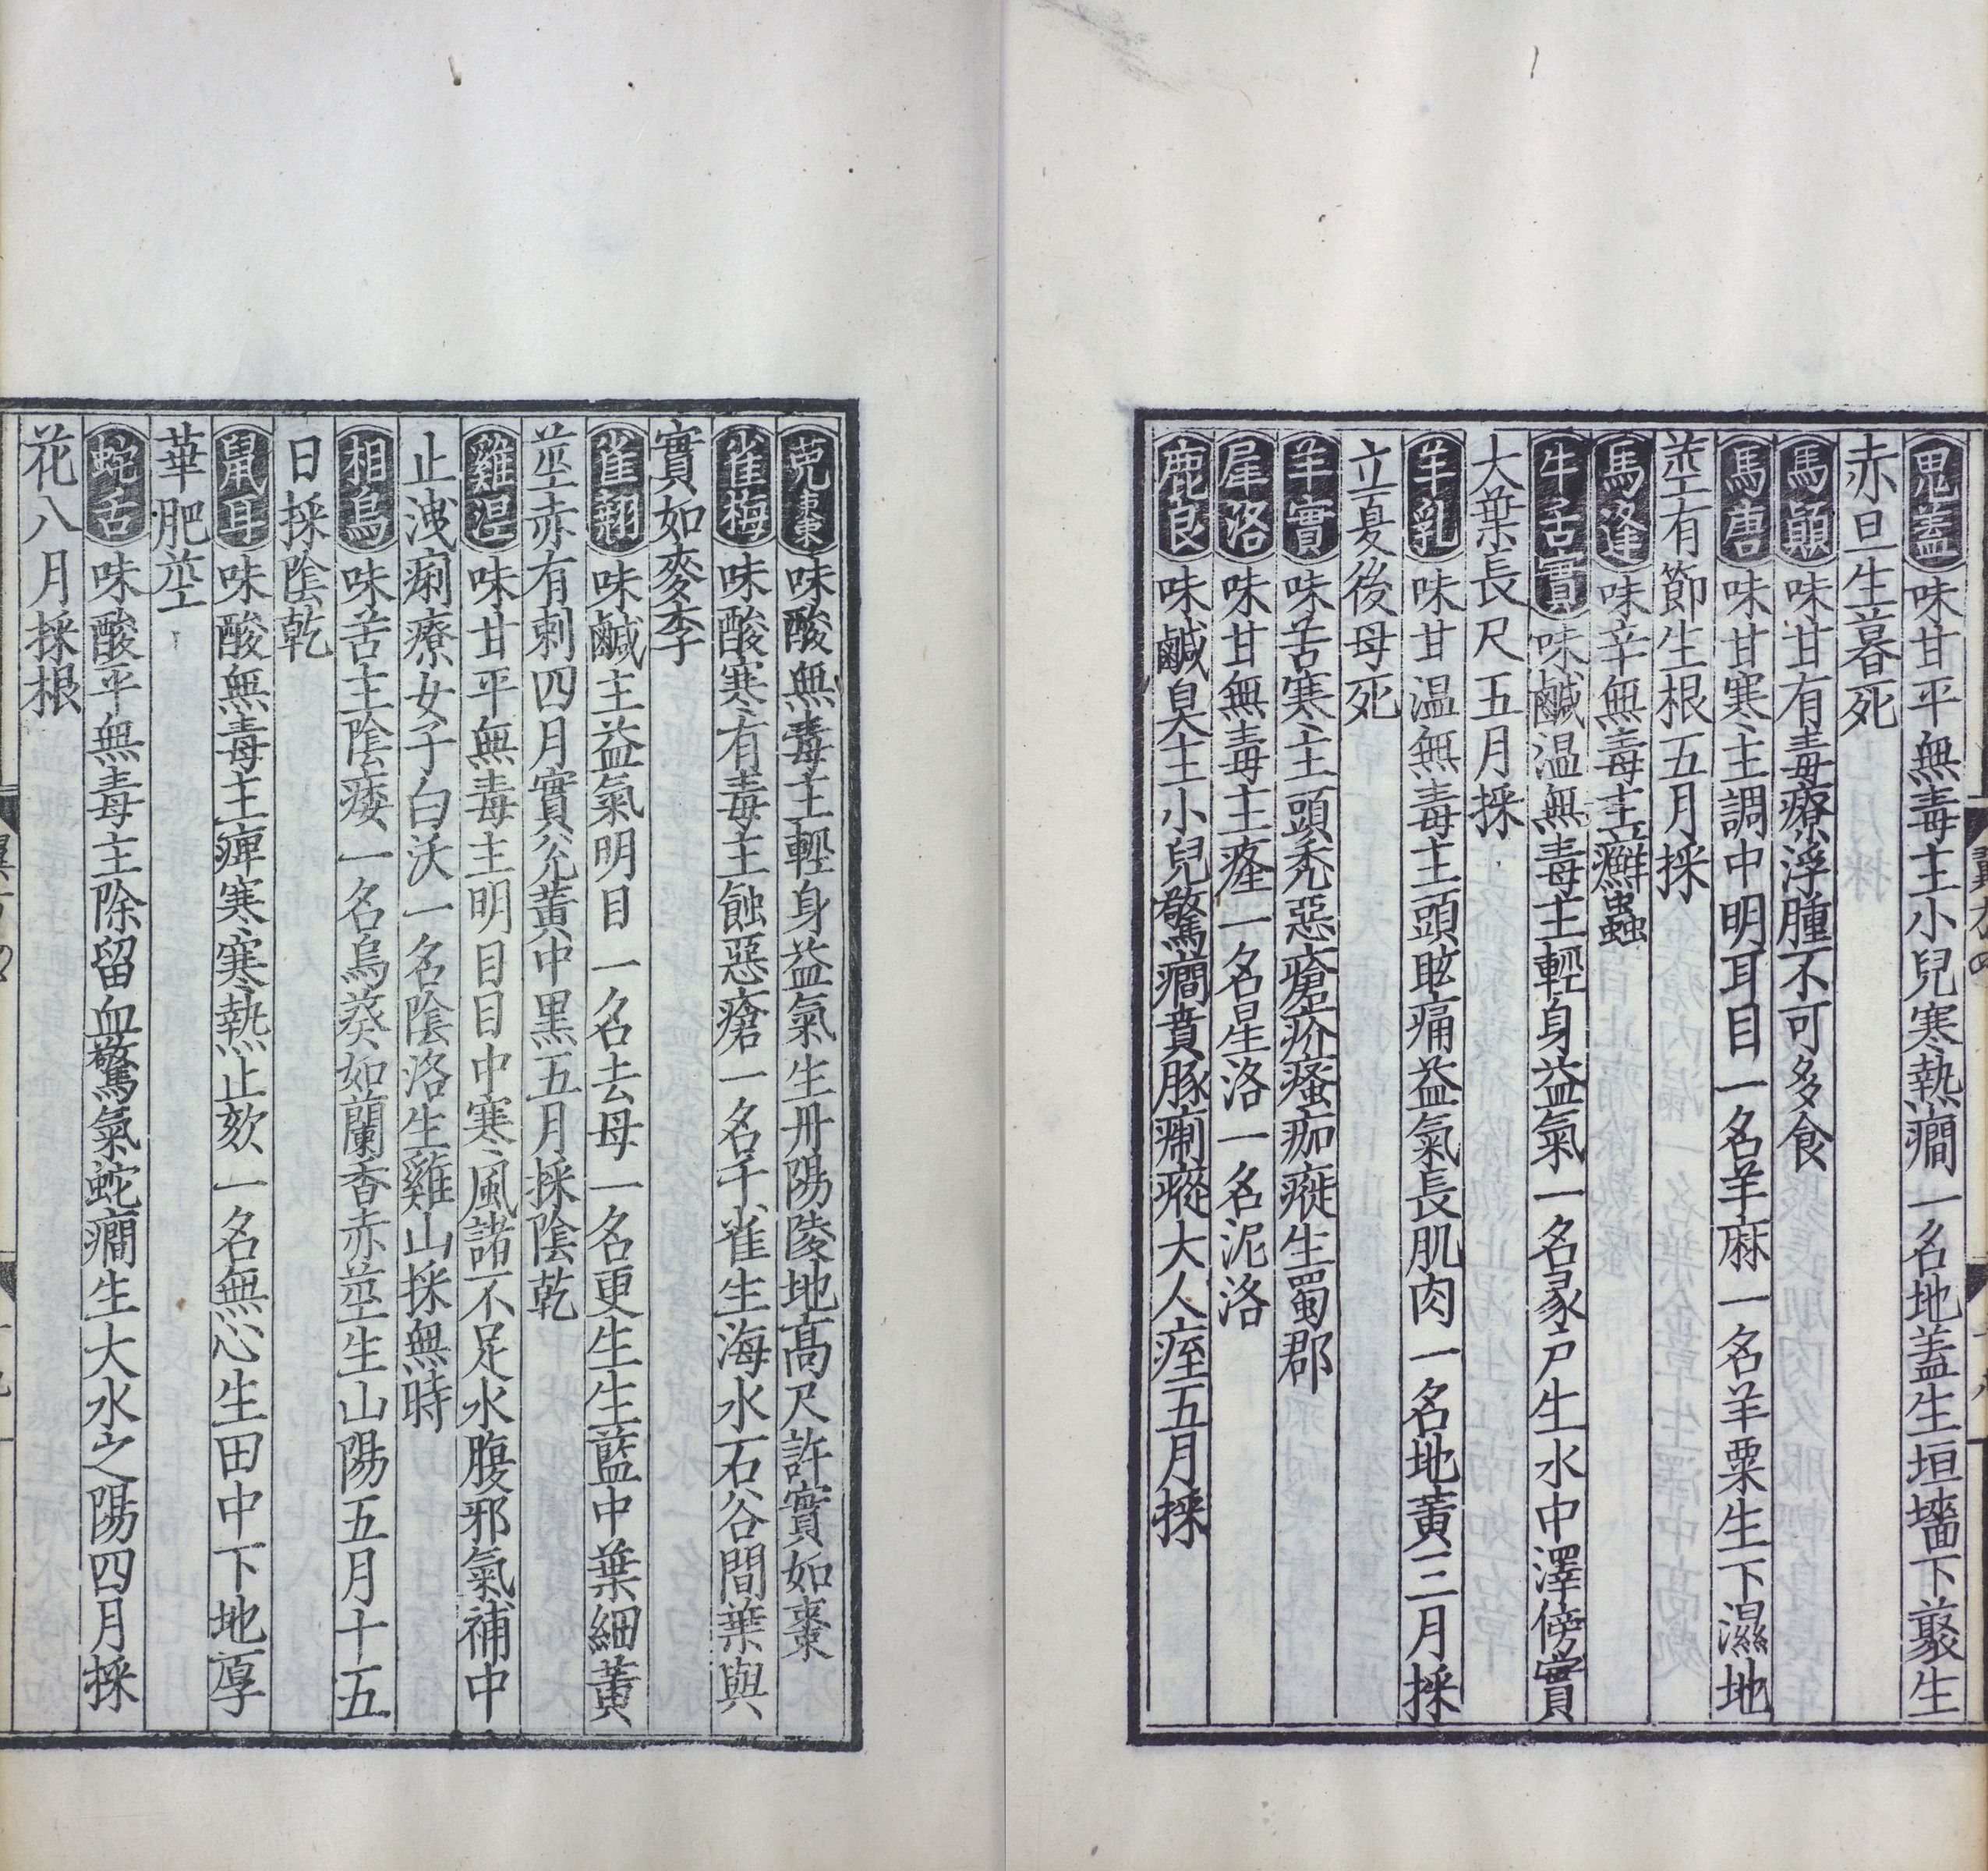 鬼蓋味甘平無毒主小兒寒熱癇一名地蓋生垣墻下䕺生
赤旦生暮死
馬顛味甘有毒療浮腫不可多食
馬唐味甘寒主調中明耳目一名羊麻一名羊粟生下濕地
莖有節生根五月採
馬逢味辛無毒主癬蟲
牛舌實味鹹温無毒主輕身益氣一名豕尸生水中澤傍實
大葉長尺五月採
羊乳味甘温無毒主頭眩痛益氣長肌肉一名地黃三月採
立夏後母死
羊實味苦寒主頭禿惡瘡疥瘙痂癬生蜀郡
犀洛味甘無毒主癃一名星洛一名泥洛
鹿良味鹹臭主小兒驚癇賁豚瘛瘲大人痓五月採
菟棗味酸無毒主輕身益氣生丹陽陵地高尺許實如棗
雀梅味酸寒有毒主蝕惡瘡一名千雀生海水石谷間葉與
實如麥李
雀翹味鹹主益氣明目一名去母一名更生生藍中葉細黃
莖赤有刺四月實兊黃中黑五月採陰乾
雞涅味甘平無毒主明目目中寒風諸不足水腹邪氣補中
止洩痢療女子白沃一名陰洛生雞山採無時
相烏味苦主陰痿一名烏葵如蘭香赤莖生山陽五月十五
日採陰乾
鼠耳味酸無毒主痺寒寒熱止欬一名無心生田中下地厚
華肥莖
蛇舌味酸平無毒主除留血驚氣蛇癇生大水之陽四月採
花八月採根